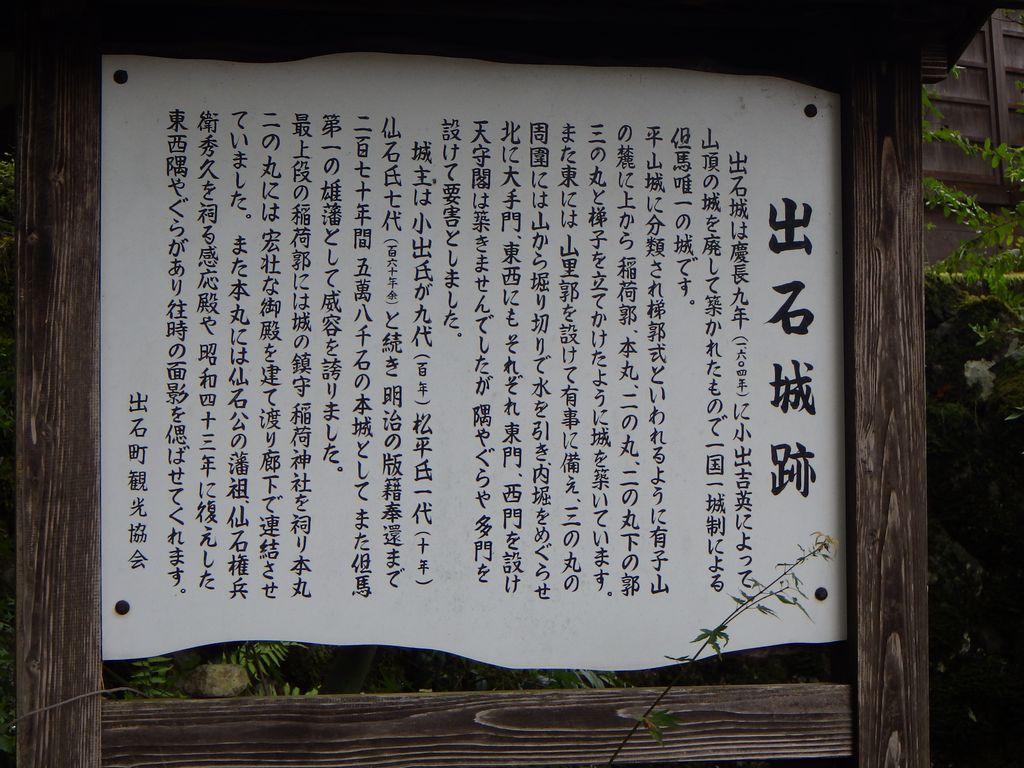 出石城跡
出石城は慶長九年(一六〇四年)に小出吉英によって
山頂の城を廃して築かれたもので一国一城制による
但馬唯一の城です。
平山城に分類され梯郭式といわれるように有子山
の麓に上から稲荷郭、本丸、二の丸、二の丸下の郭
三の丸と梯子を立てかけたように城を築いています。
また東には山里郭を設けて有事に備え、三の丸の
周囲には山から堀り切りで水を引き内堀をめぐらせ
北に大手門、東西にもそれぞれ東門、西門を設け
天守閣は築きませんでしたが隅やぐらや多門を
設けて要害としました。
城主は小出氏が九代(百年)松平氏一代(十年)
仙石氏七代(百六十年余)と続き明治の版籍奉還まで
二百七十年間五萬八千石の本城としてまた但馬
第一の雄藩として威容を誇りました。
最上段の稲荷郭には城の鎮守稲荷神社を祠り本丸
二の丸には宏壮な御殿を建て渡り廊下で連結させ
ていました。また本丸には仙石公の藩祖、仙石権兵
衛秀久を祠る感応殿や昭和四十三年に復元した
東西隅やぐらがあり往時の面影を偲ばせてくれます。
出石町観光協会